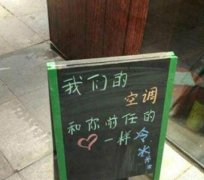 我们的
空调
和你前任的
♡一样冷